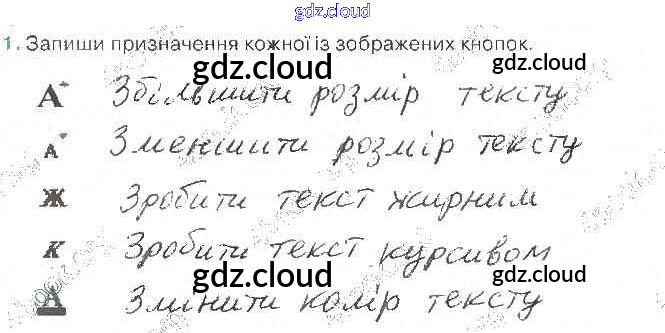 gdz.cloud
1. Запиши призначення кожної із зображених кнопок.
gdz.cloud gdz.cloud
А Збільшити розмір тексту
gdz.cloud gdz.cloud
А Зменшити розмір тексту
Ж Зробити текст жирним
К Зробити текст курсивом
gdz.cloud gdz.cloud
А Змінити колір тексту